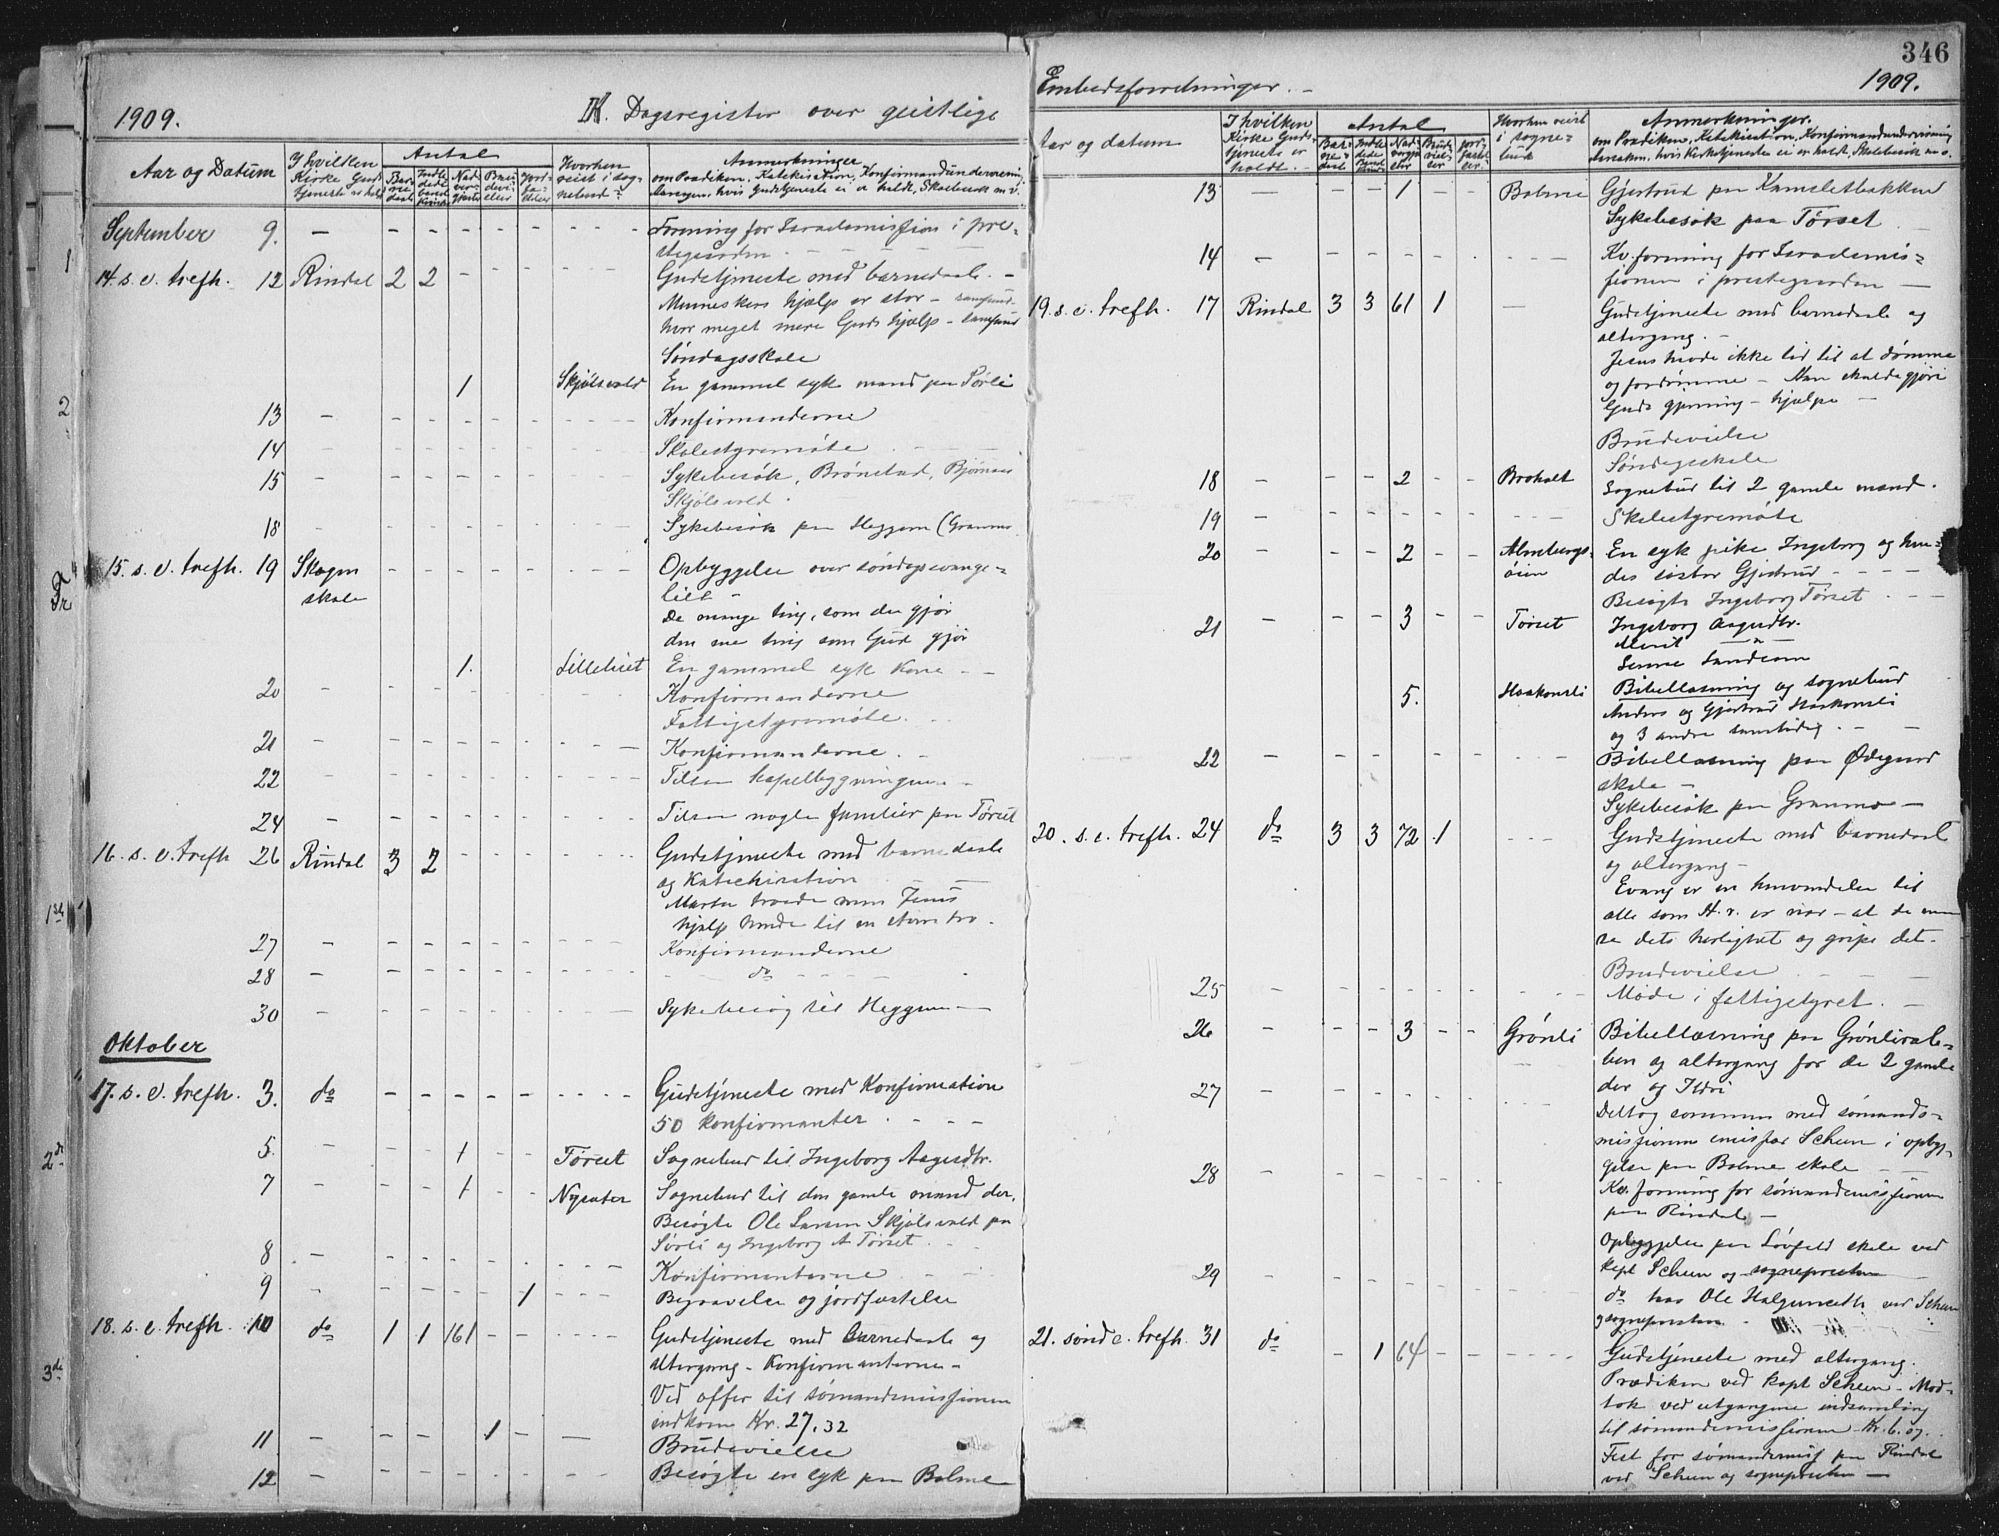 346
1909.
IX. Dagsregister over geistlige
Embedsforretninger.
1909.
Aar og Datum
I hvilken Kirke Guds-
tjeneste er holdt
Antal
Hvorhen
reist i sog-
nebud?
Anmerkninger
om Prædiken, Katekisation, Konfirmandundervisning,
Aarsagen, hvis Gudstjeneste ei er holdt, Skolebesøk m.v.
September 9. – Forening for Israelsmissionen i pre-
stegaarden.
14. s. e. trefh. 12 Rindal 2 2 Gudstjeneste med barnedaab. –
Menneskers hjælp er stor –
hvor meget mere Guds hjælp –
Søndagsskole
1 Skjølsvold En gammel syk mand paa Sørli
13 Konfirmanderne
14 Skolestyremøte
15 Sykebesøk, Brønstad, Bjørnaas
Skjølsvold.
18 Sykebesøk paa Heggem (Granmo
15. s. e. trefh. 19 Skogen
skole Opbyggelse over søndagsevange-
liet –
De mange ting, som du gjør
den ene ting som Gud gjør
1. Lillehiet En gammel syk kone –
20 Konfirmanderne
Fattigstyremøte.
21 Konfirmanderne.
22 Tilsaa kapelbygningen –
24 Tilsaa nogle familier paa Tørset
16. s. e. trefh 26 Rindal 3 2 Gudstjeneste med barnedaab
og Katekisation
Marta troede men Jesus
hjalp hende til en større tro.
27 Konfirmanderne
28 do
30 Sykebesøg til Heggem
Oktober
17. s. e. trefh. 3. do Gudstjeneste med Konfirmation
50 konfirmanter
5. 1 Tørset Sognebud til Ingeborg Aagesdtr.
7 1 Nysæter Sognebud til den gamle mand der.
Besøgte Ole Larsen Skjølsvold paa
Sørli og Ingeborg A Tørset.
8 Konfirmanterne
9 1 Begravelse og jordfæstelse
18. s. e. trefh. 10 do 1 1 161 Gudstjeneste med barnedaab og
altergang – Konfirmanterne –
Ved offer til sømandsmissionen
indkom Kr. 27,32
11 1 Brudevielse
12 Besøgte en syk paa Bolme
Aar og datum
I hvilken
Kirke Guds-
tjeneste er
holdt.
Antal
Hvorhen reist
i sogne-
bud
Anmerkninger.
om Prædiken, Katekisation, Konfirmandundervisning
Aarsaken, hvis Kirketjeneste ei er holdt, Skolebesøk m.v.
13 1 Bolme Gjertrud paa Kamsletbakken
Sykebesøk paa Tørset
14 Kv.forening for Israelsmis-
sionen i prestegaarden
19. s. e. trefh. 17 Rindal 3 3 61 1 Gudstjeneste med barnedaab og
altergang. –
Jesus havde ikke tid til at dømme
og fordømme – Han skulde gjøre
Guds gjerning – hjælpe –
Brudevielse
Søndagsskole
18 2 Broholt Sognebud til 2 gamle mænd.
19 Skolestyremøte
20 2 Almbergs-
øien En syk pike Ingeborg og hen-
des søster Gjertrud
Besøgte Ingeborg Tørset.
21 3 Tørset Ingeborg Aagesdtr.
Marit –"–
5. Haakonsli Bibellæsning og sognebud
Anders og Gjertrud Haakonsli
og 3 andre samtidig.
22 Bibellæsning paa Ødegaard
skole –
Sykebesøk paa Granmo –
20. s. e. trefh. 24 do 3 3 72 1 Gudstjeneste med barnedaab
og altergang –
Evang er en henvendelse til
alle som H. r. er nær – at de maa
se dets herlighet og gripe det.
Brudevielse
25 Møde i fattigstyret.
26 3 Grønli Bibellæsning paa Grønlistu-
ben og altergang for de 2 gamle
der og Ildri
27 Deltog sammen med sømands-
missionens emissær Scheen i opbyg-
gelse paa Bolme skole –
28 Kv. forening for sømandsmissionen
paa Rindal –
Opbyggelse paa Løvfeld skole ved
kapt Scheen og sognepresten
29 do hos Ole Halgunseth ved Scheen
og sognepresten
21. sønd e. trefh. 31 do 1 64 Gudstjeneste med altergang.
Prædiken ved kapt Scheen – Mod-
tok ved utgangene indsamling
til sømandsmissionen Kr. 6.07.
Fest for sømandsmis. paa Rindal
ved Scheen og sognepresten –